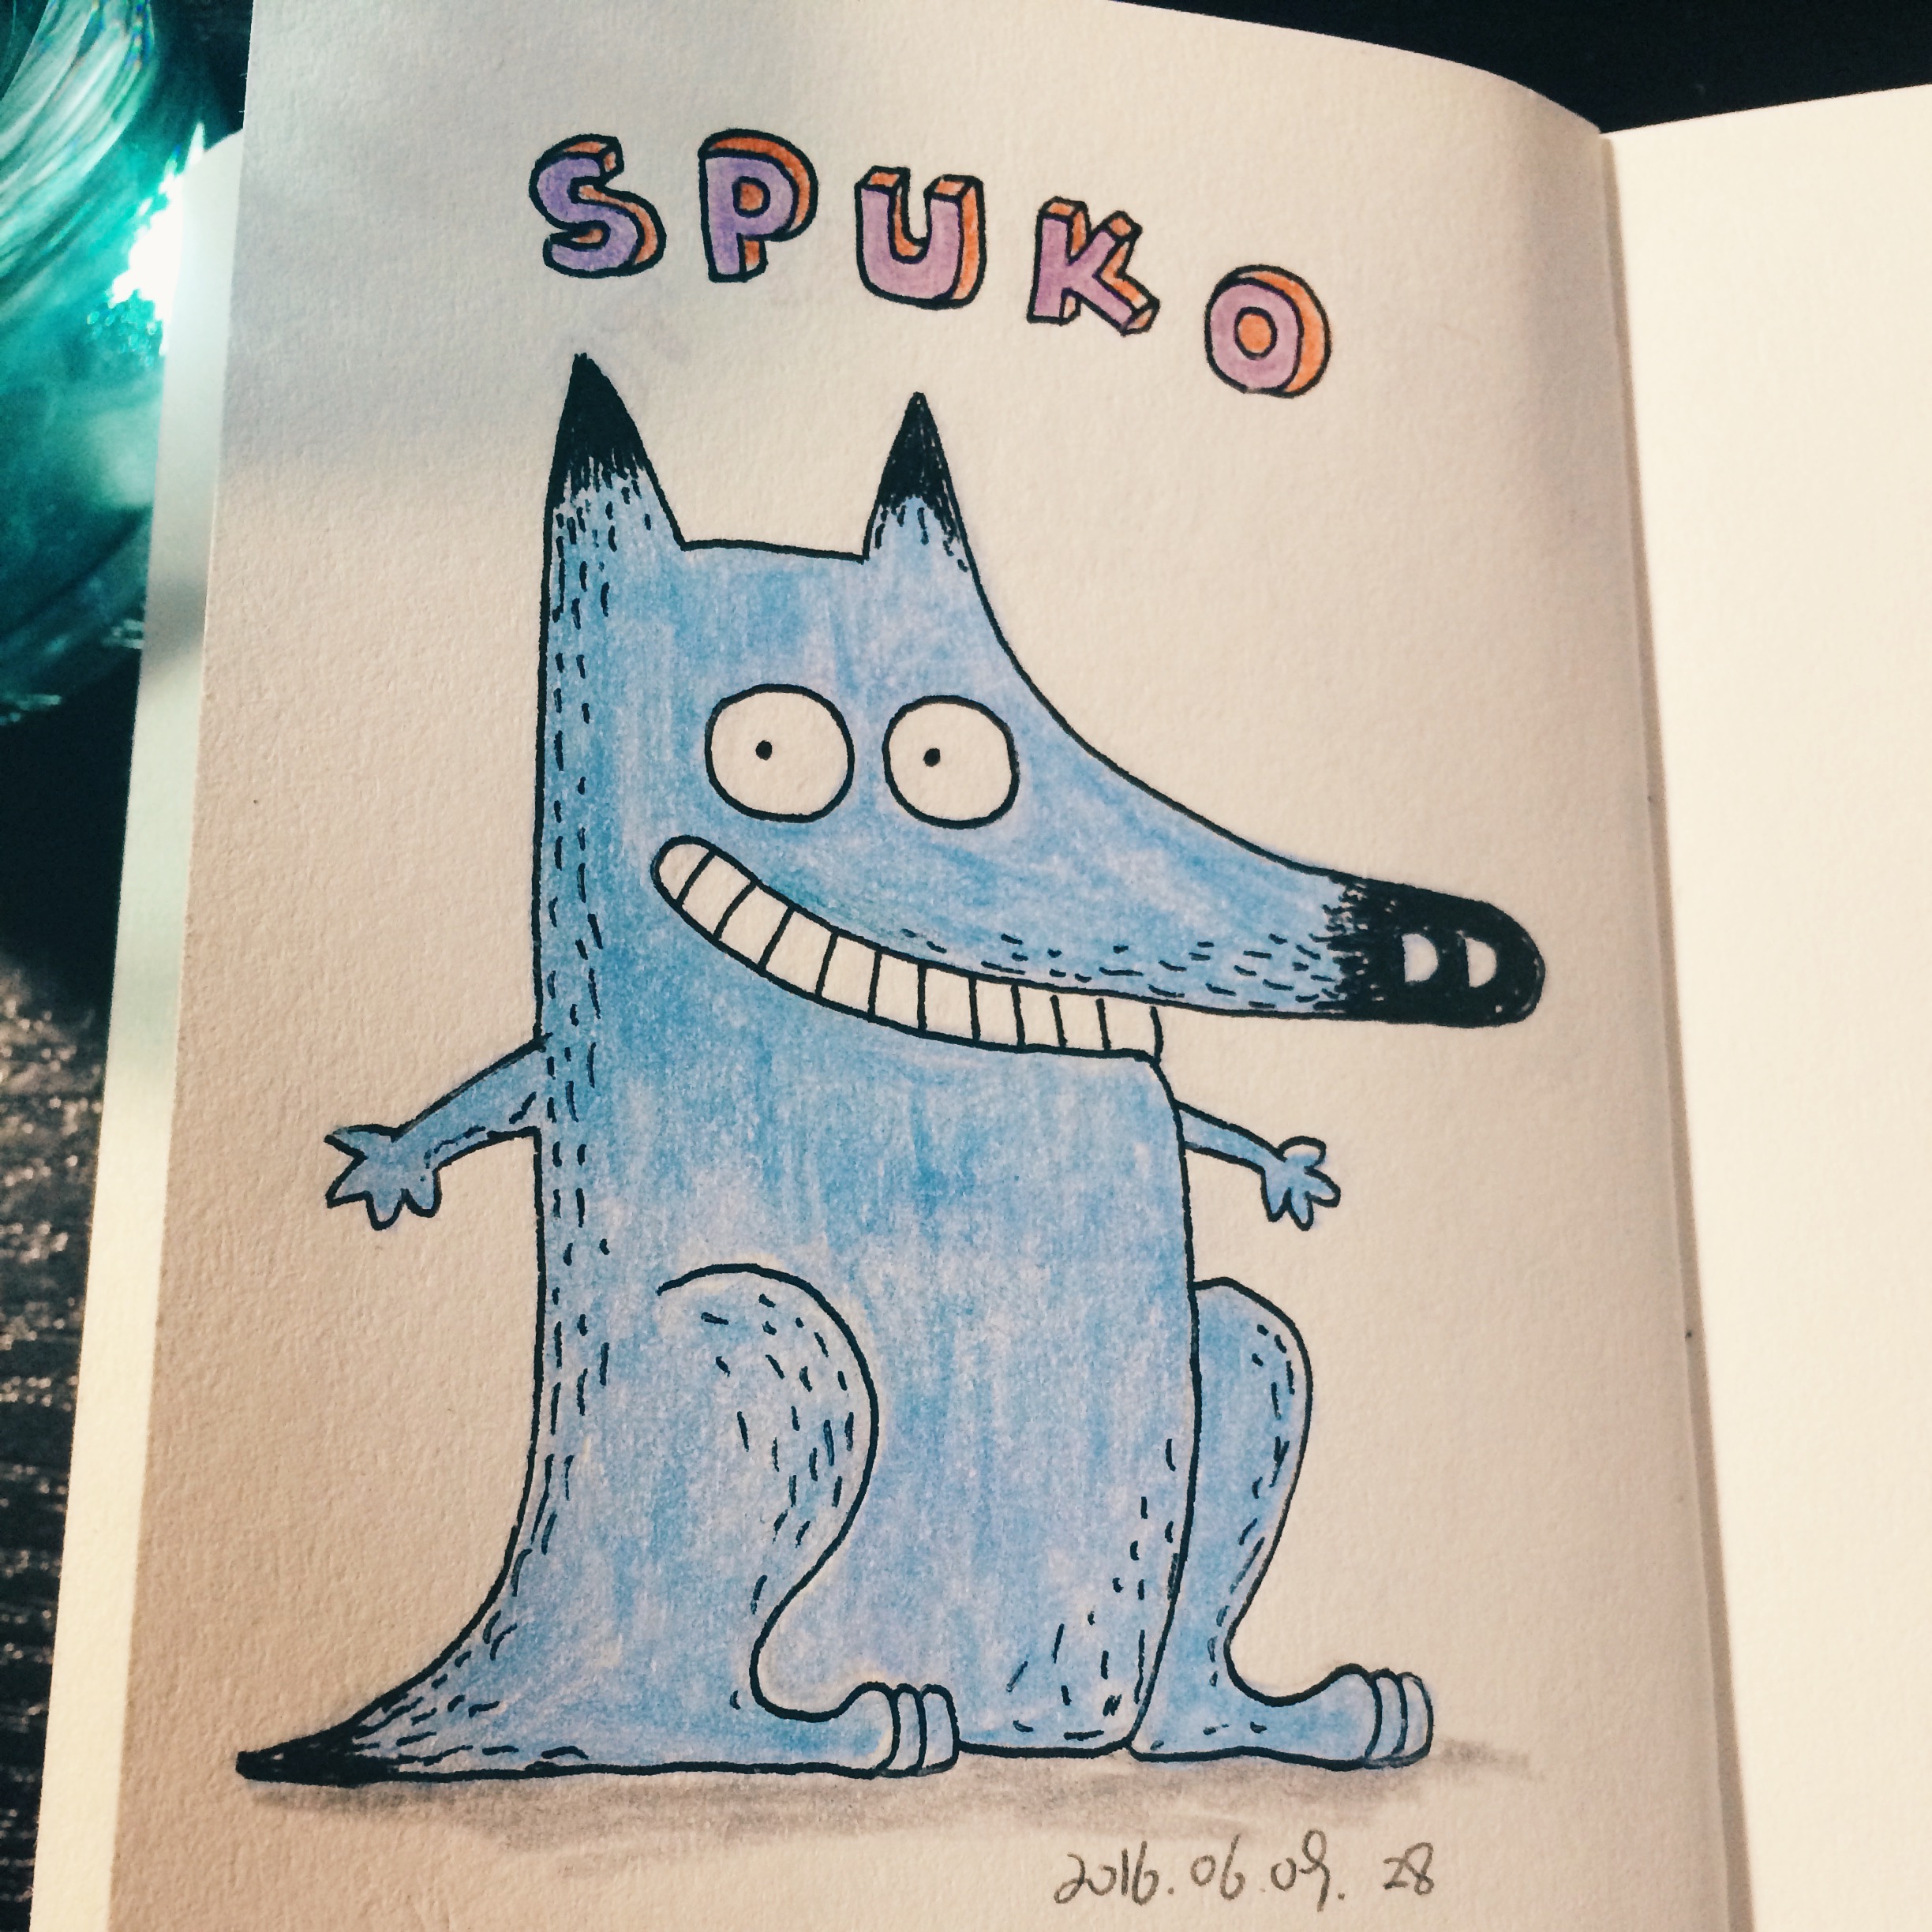 SPUKO
2016.06.09. 28